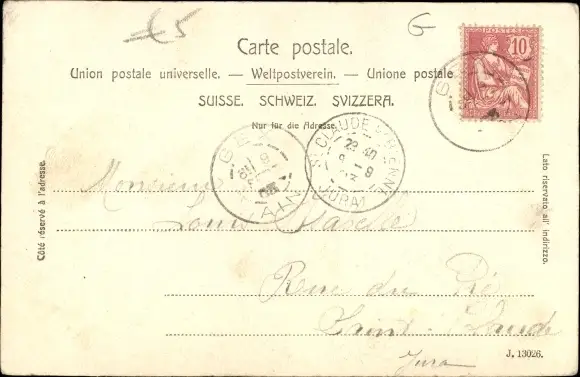 €5
G
Carte postale.
Union postale universelle. — Weltpostverein. — Unione postale
SUISSE. SCHWEIZ. SVIZZERA.
Nur für die Adresse.
POSTES
10
GEX
AIN
ST CLAUDE
JURA
Côté réservé à l'adresse.
Lato riservato all' indirizzo.
Monsieur
Louis
Rue du Pré
Saint-Claude
Jura
J. 13026.